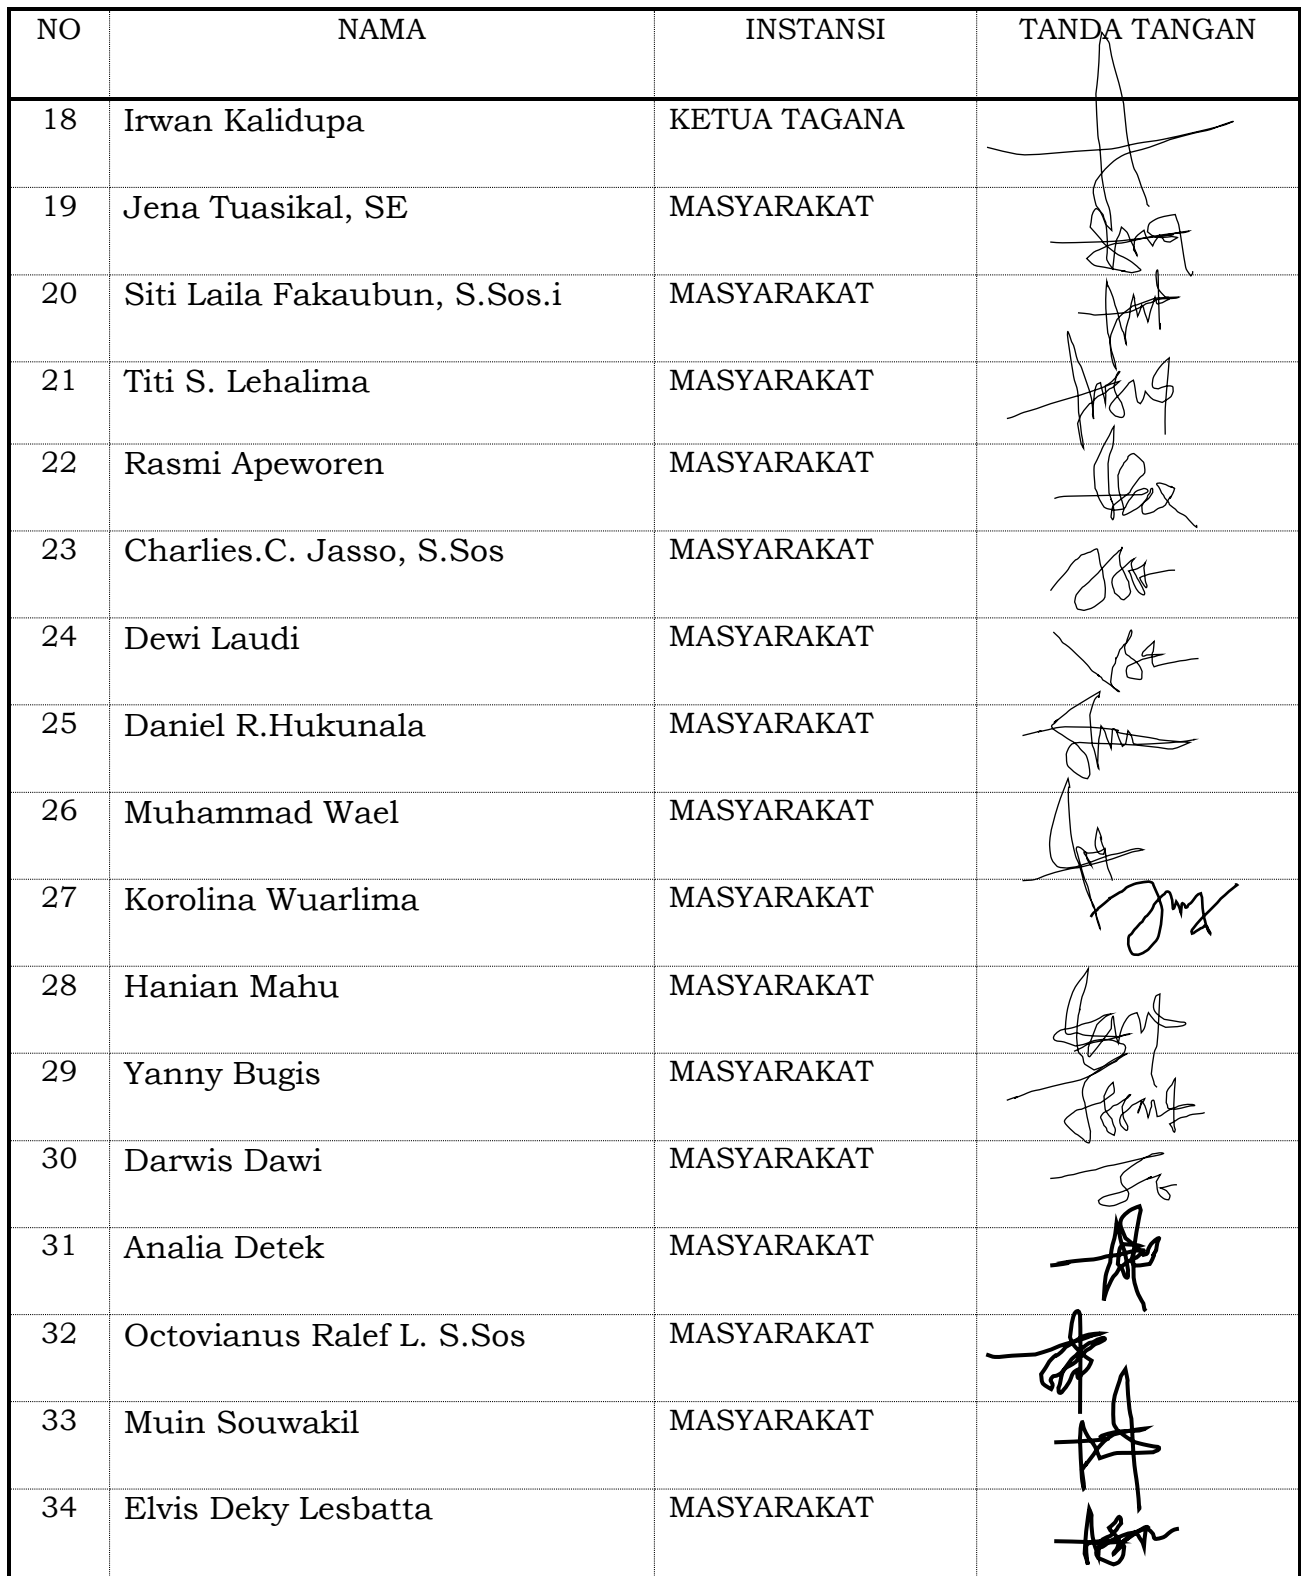 NO NAMA INSTANSI TANDA TANGAN
18 Irwan Kalidupa KETUA TAGANA
19 Jena Tuasikal, SE MASYARAKAT
20 Siti Laila Fakaubun, S.Sos.i MASYARAKAT
21 Titi S. Lehalima MASYARAKAT
22 Rasmi Apeworen MASYARAKAT
23 Charlies.C. Jasso, S.Sos MASYARAKAT
24 Dewi Laudi MASYARAKAT
25 Daniel R.Hukunala MASYARAKAT
26 Muhammad Wael MASYARAKAT
27 Korolina Wuarlima MASYARAKAT
28 Hanian Mahu MASYARAKAT
29 Yanny Bugis MASYARAKAT
30 Darwis Dawi MASYARAKAT
31 Analia Detek MASYARAKAT
32 Octovianus Ralef L. S.Sos MASYARAKAT
33 Muin Souwakil MASYARAKAT
34 Elvis Deky Lesbatta MASYARAKAT